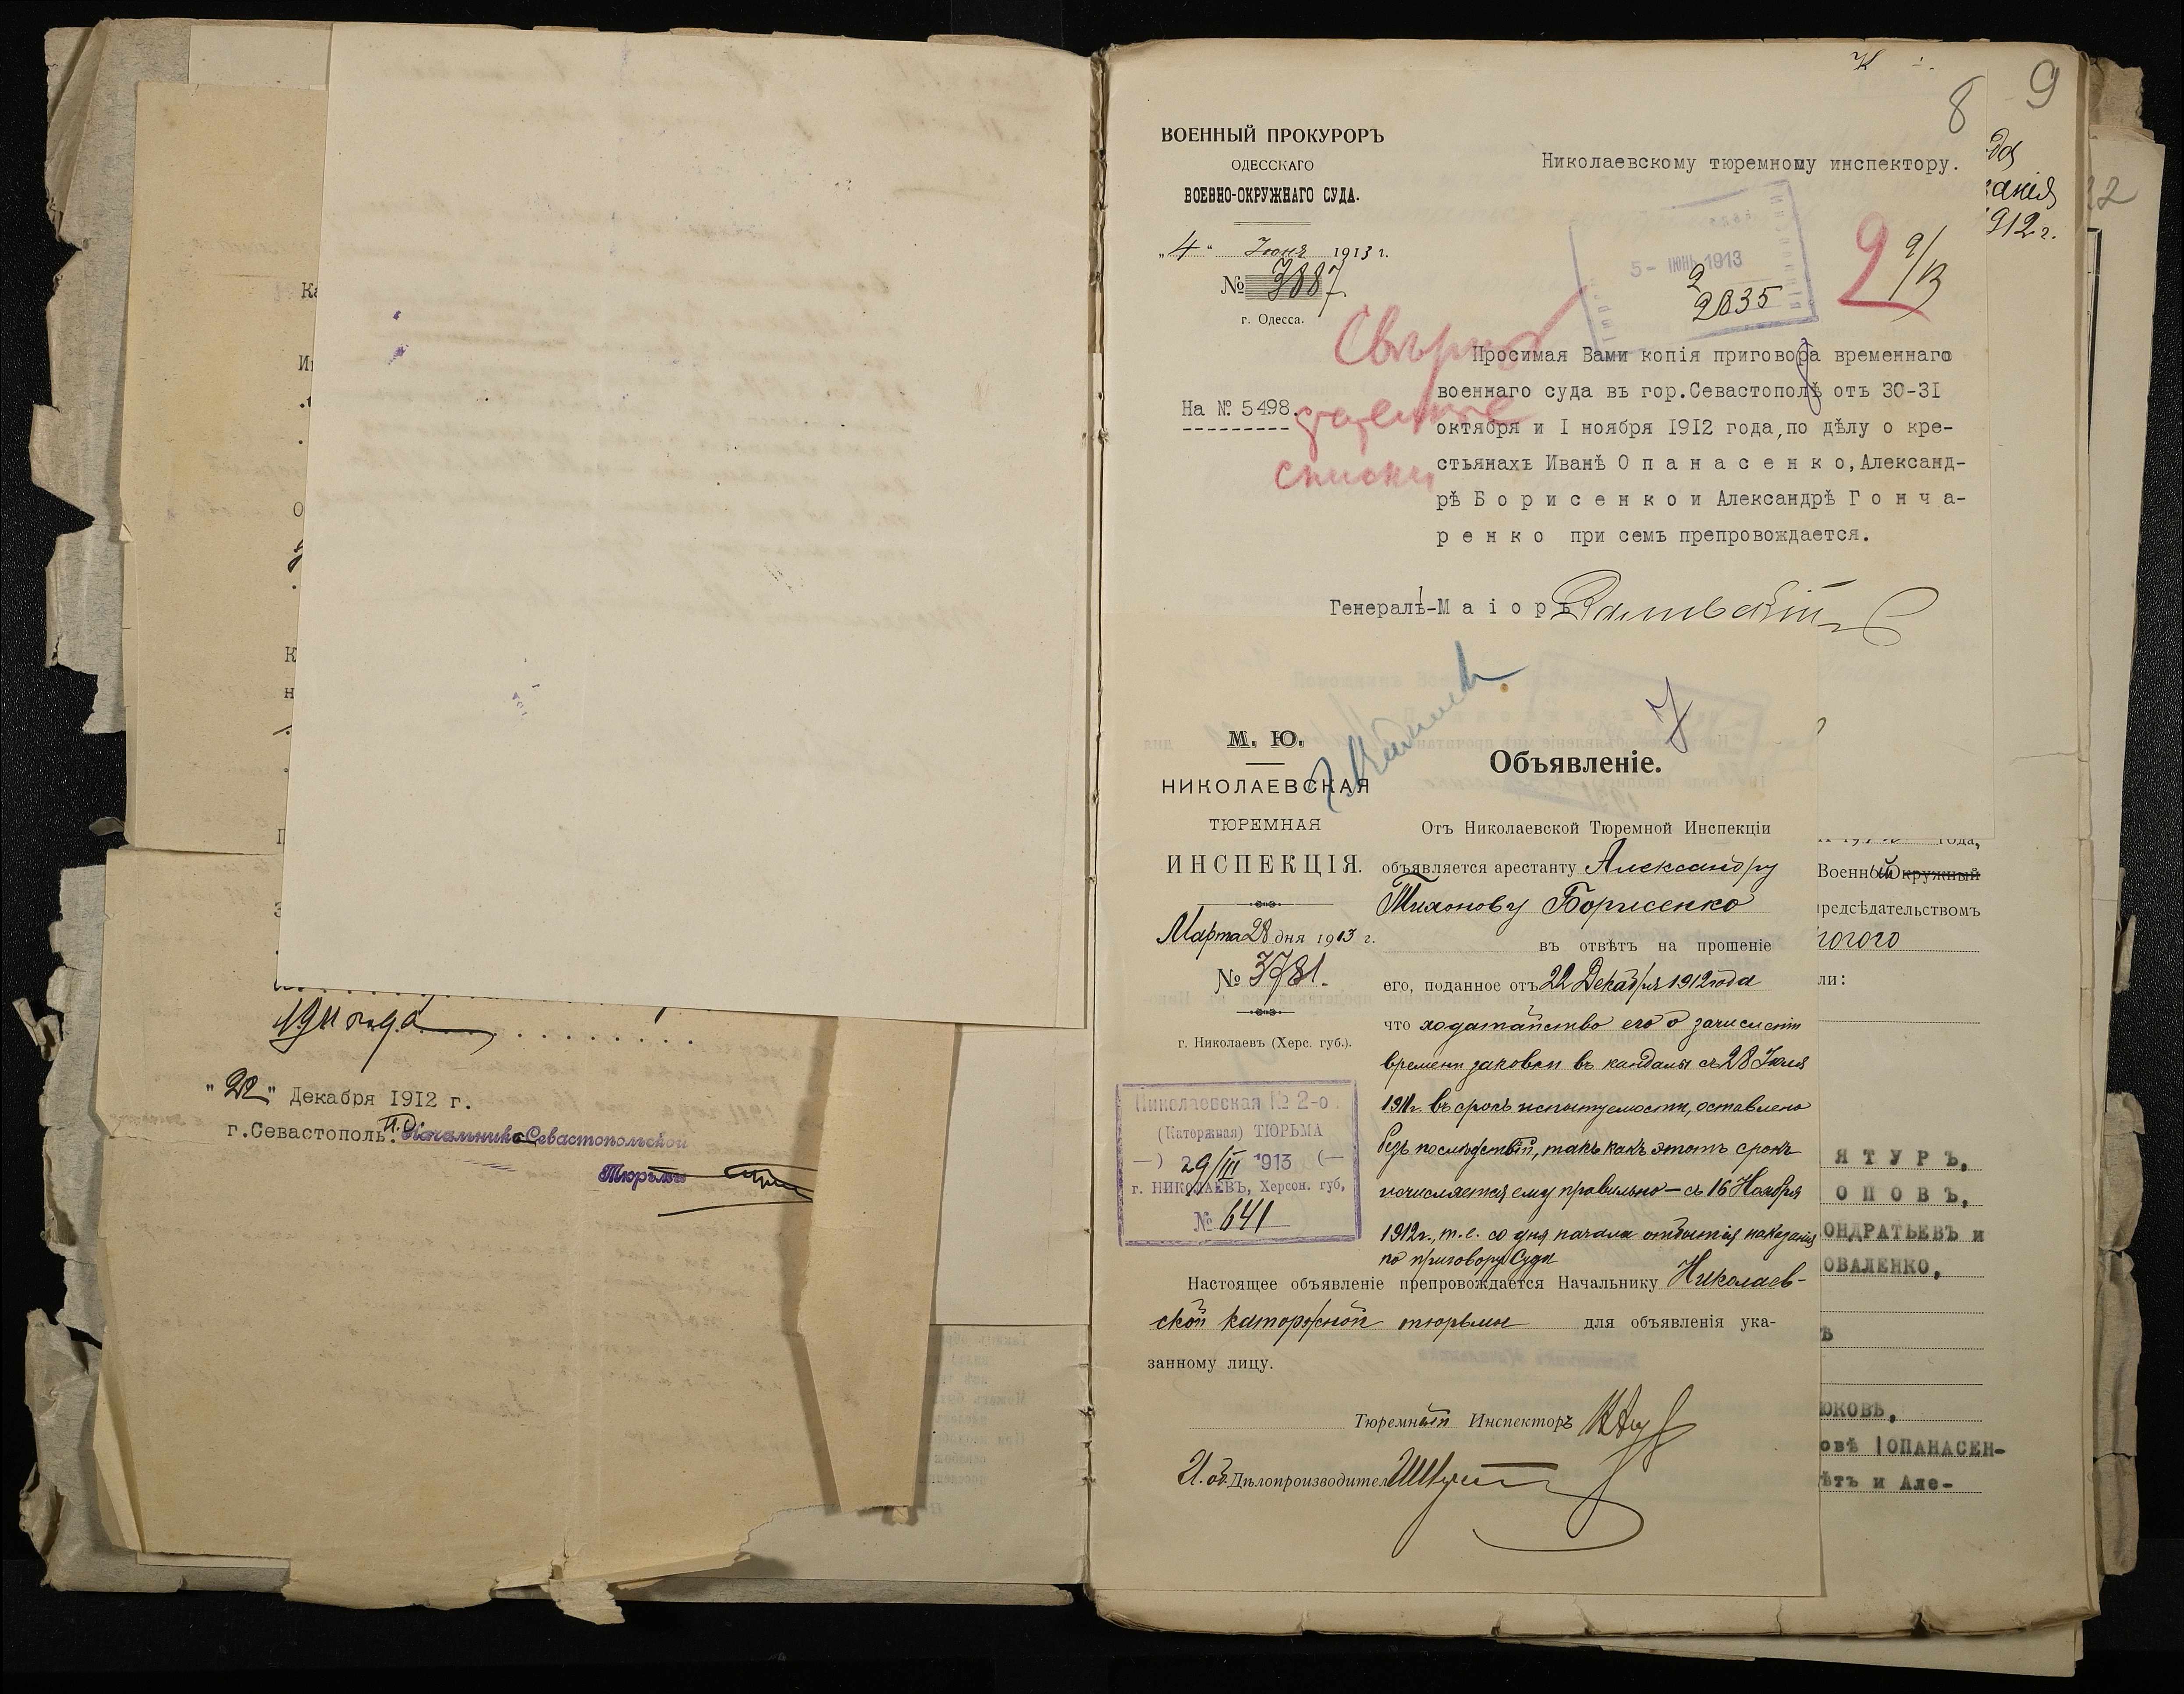 1911 года
"22" Декабря 1912 г.
г.Севастополь.
Начальникъ Севастопольской
Тюрьмы
8
9
ВОЕННЫЙ ПРОКУРОРЪ
ОДЕССКАГО
ВОЕННО-ОКРУЖНАГО СУДА.
„4“ Іюня 1913 г.
№ 3887
г. Одесса.
На № 5498.
Николаевскому тюремному инспектору.
5 - ІЮНЬ 1913
2
2835
2 9/13
Свѣрить
статейные
списки
Просимая Вами копія приговора временнаго
военнаго суда въ гор.Севастополѣ отъ 30-31
октября и I ноября 1912 года,по дѣлу о кре-
стьянахъ Иванѣ О п а н а с е н к о, Александ-
рѣ Б о р и с е н к о и Александрѣ Г о н ч а-
р е н к о при семъ препровождается.
Генералъ-М а і о р ъ
912 г.
22
М. Ю.
НИКОЛАЕВСКАЯ
ТЮРЕМНАЯ
ИНСПЕКЦІЯ.
Марта 28 дня 1913 г.
№ 3781.
г. Николаевъ (Херс. губ.).
Николаевская № 2-о
(Каторжная) ТЮРЬМА
29/III 1913
г. НИКОЛАЕВЪ, Херсон. губ,
№ 641
7
Объявленіе.
Отъ Николаевской Тюремной Инспекціи
объявляется арестанту Александру
Тихонову Борисенко
въ отвѣтъ на прошеніе
его, поданное отъ 22 Декабря 1912 года
что ходатайство его о зачисленіи
времени заковки въ кандалы съ 28 Іюля
1911г. въ срокъ испытуемости, оставлено
безъ послѣдствій, такъ какъ этотъ срокъ
исчисляется ему правильно — съ 16 Ноября
1912г., т.е. со дня начала отбытія наказанія
по приговору Суда
Настоящее объявленіе препровождается Начальнику Николаев-
ской каторжной тюрьмы для объявленія ука-
занному лицу.
Тюремный Инспекторъ
И. об. Дѣлопроизводител
года,
Военный Окружный
редсѣдательствомъ
ли:
Я Т У Р Ъ,
О П О В Ъ,
ОНДРАТЬЕВЪ и
ОВАЛЕНКО,
ЮКОВЪ,
овѣ ОПАНАСЕН-
ѣтъ и Але-